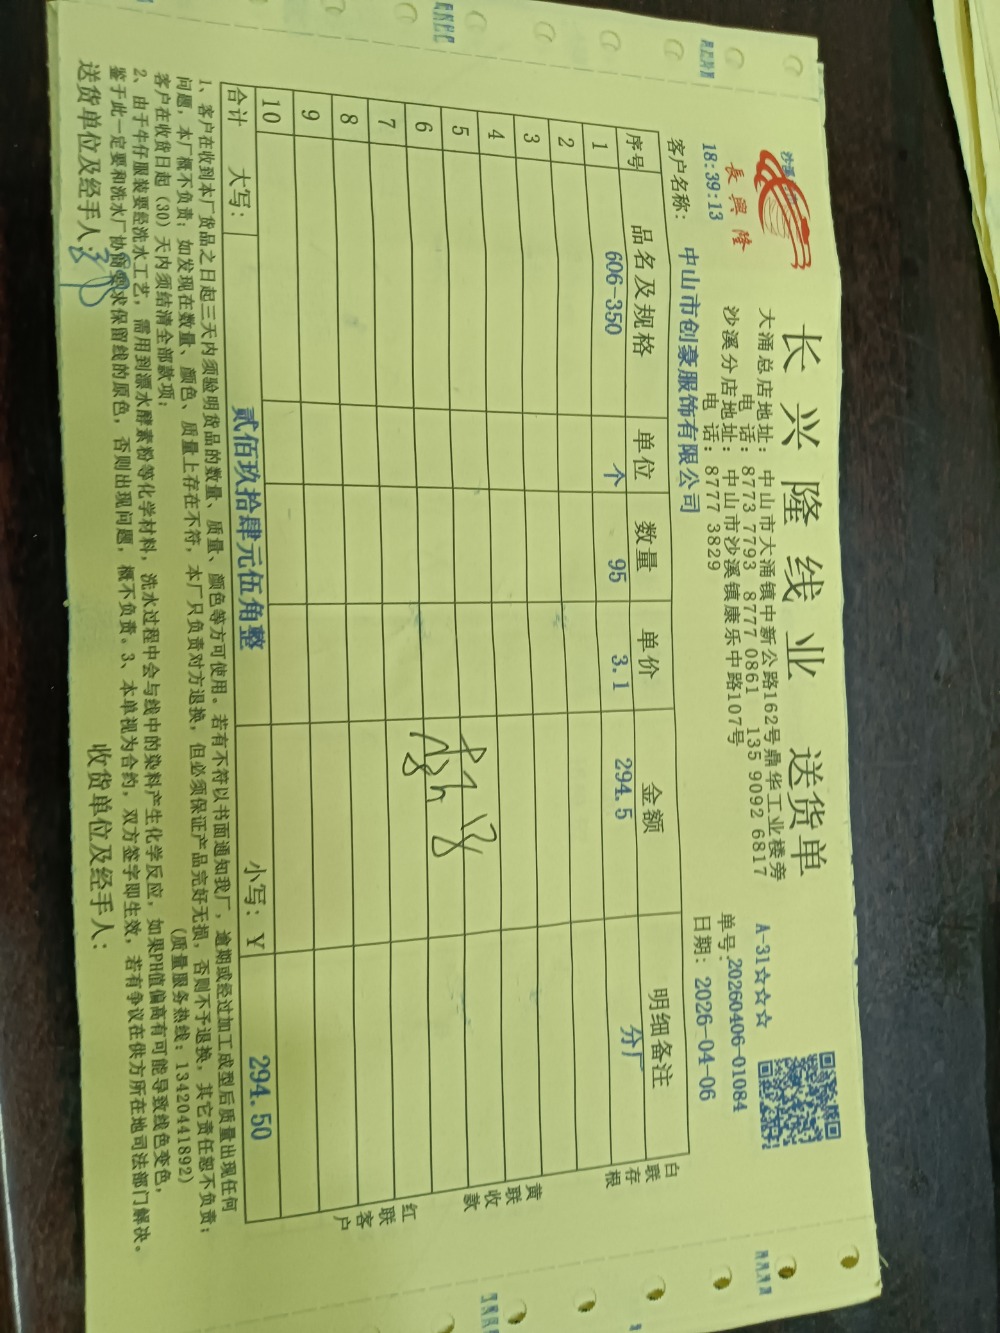 长兴隆线业 送货单
沙溪
長興隆
18:39:13
大涌总店地址: 中山市大涌镇中新公路162号鼎华工业楼旁
电 话: 8773 7793 8777 0861 135 9092 6817
沙溪分店地址: 中山市沙溪镇康乐中路107号
电 话: 8777 3829
A-31☆☆☆
单号: 20260406-01084
日期: 2026-04-06
客户名称: 中山市创豪服饰有限公司
序号 品名及规格 单位 数量 单价 金额 明细备注
1 606-350 个 95 3.1 294.5 分厂
2
3
4
5
6
7
8
9
10
合计 大写: 贰佰玖拾肆元伍角整 小写: Y 294.50
白联存根
黄联收款
红联客户
1、客户在收到本厂货品之日起三天内须验明货品的数量、质量、颜色等方可使用。若有不符以书面通知我厂，逾期或经过加工成型后质量出现任何
问题，本厂概不负责；如发现在数量、颜色、质量上存在不符，本厂只负责对方退换，但必须保证产品完好无损，否则不予退换，其它责任恕不负责；
客户在收货日起(30)天内须结清全部款项； (质量服务热线: 13420441892)
2、由于牛仔服装要经洗水工艺，需用到漂水酵素粉等化学材料，洗水过程中会与线中的染料产生化学反应，如果PH值偏高有可能导致线色变色，
鉴于此一定要和洗水厂协商要求保留线的原色，否则出现问题，概不负责。3、本单视为合约，双方签字即生效，若有争议在供方所在地司法部门解决。
送货单位及经手人: 收货单位及经手人: